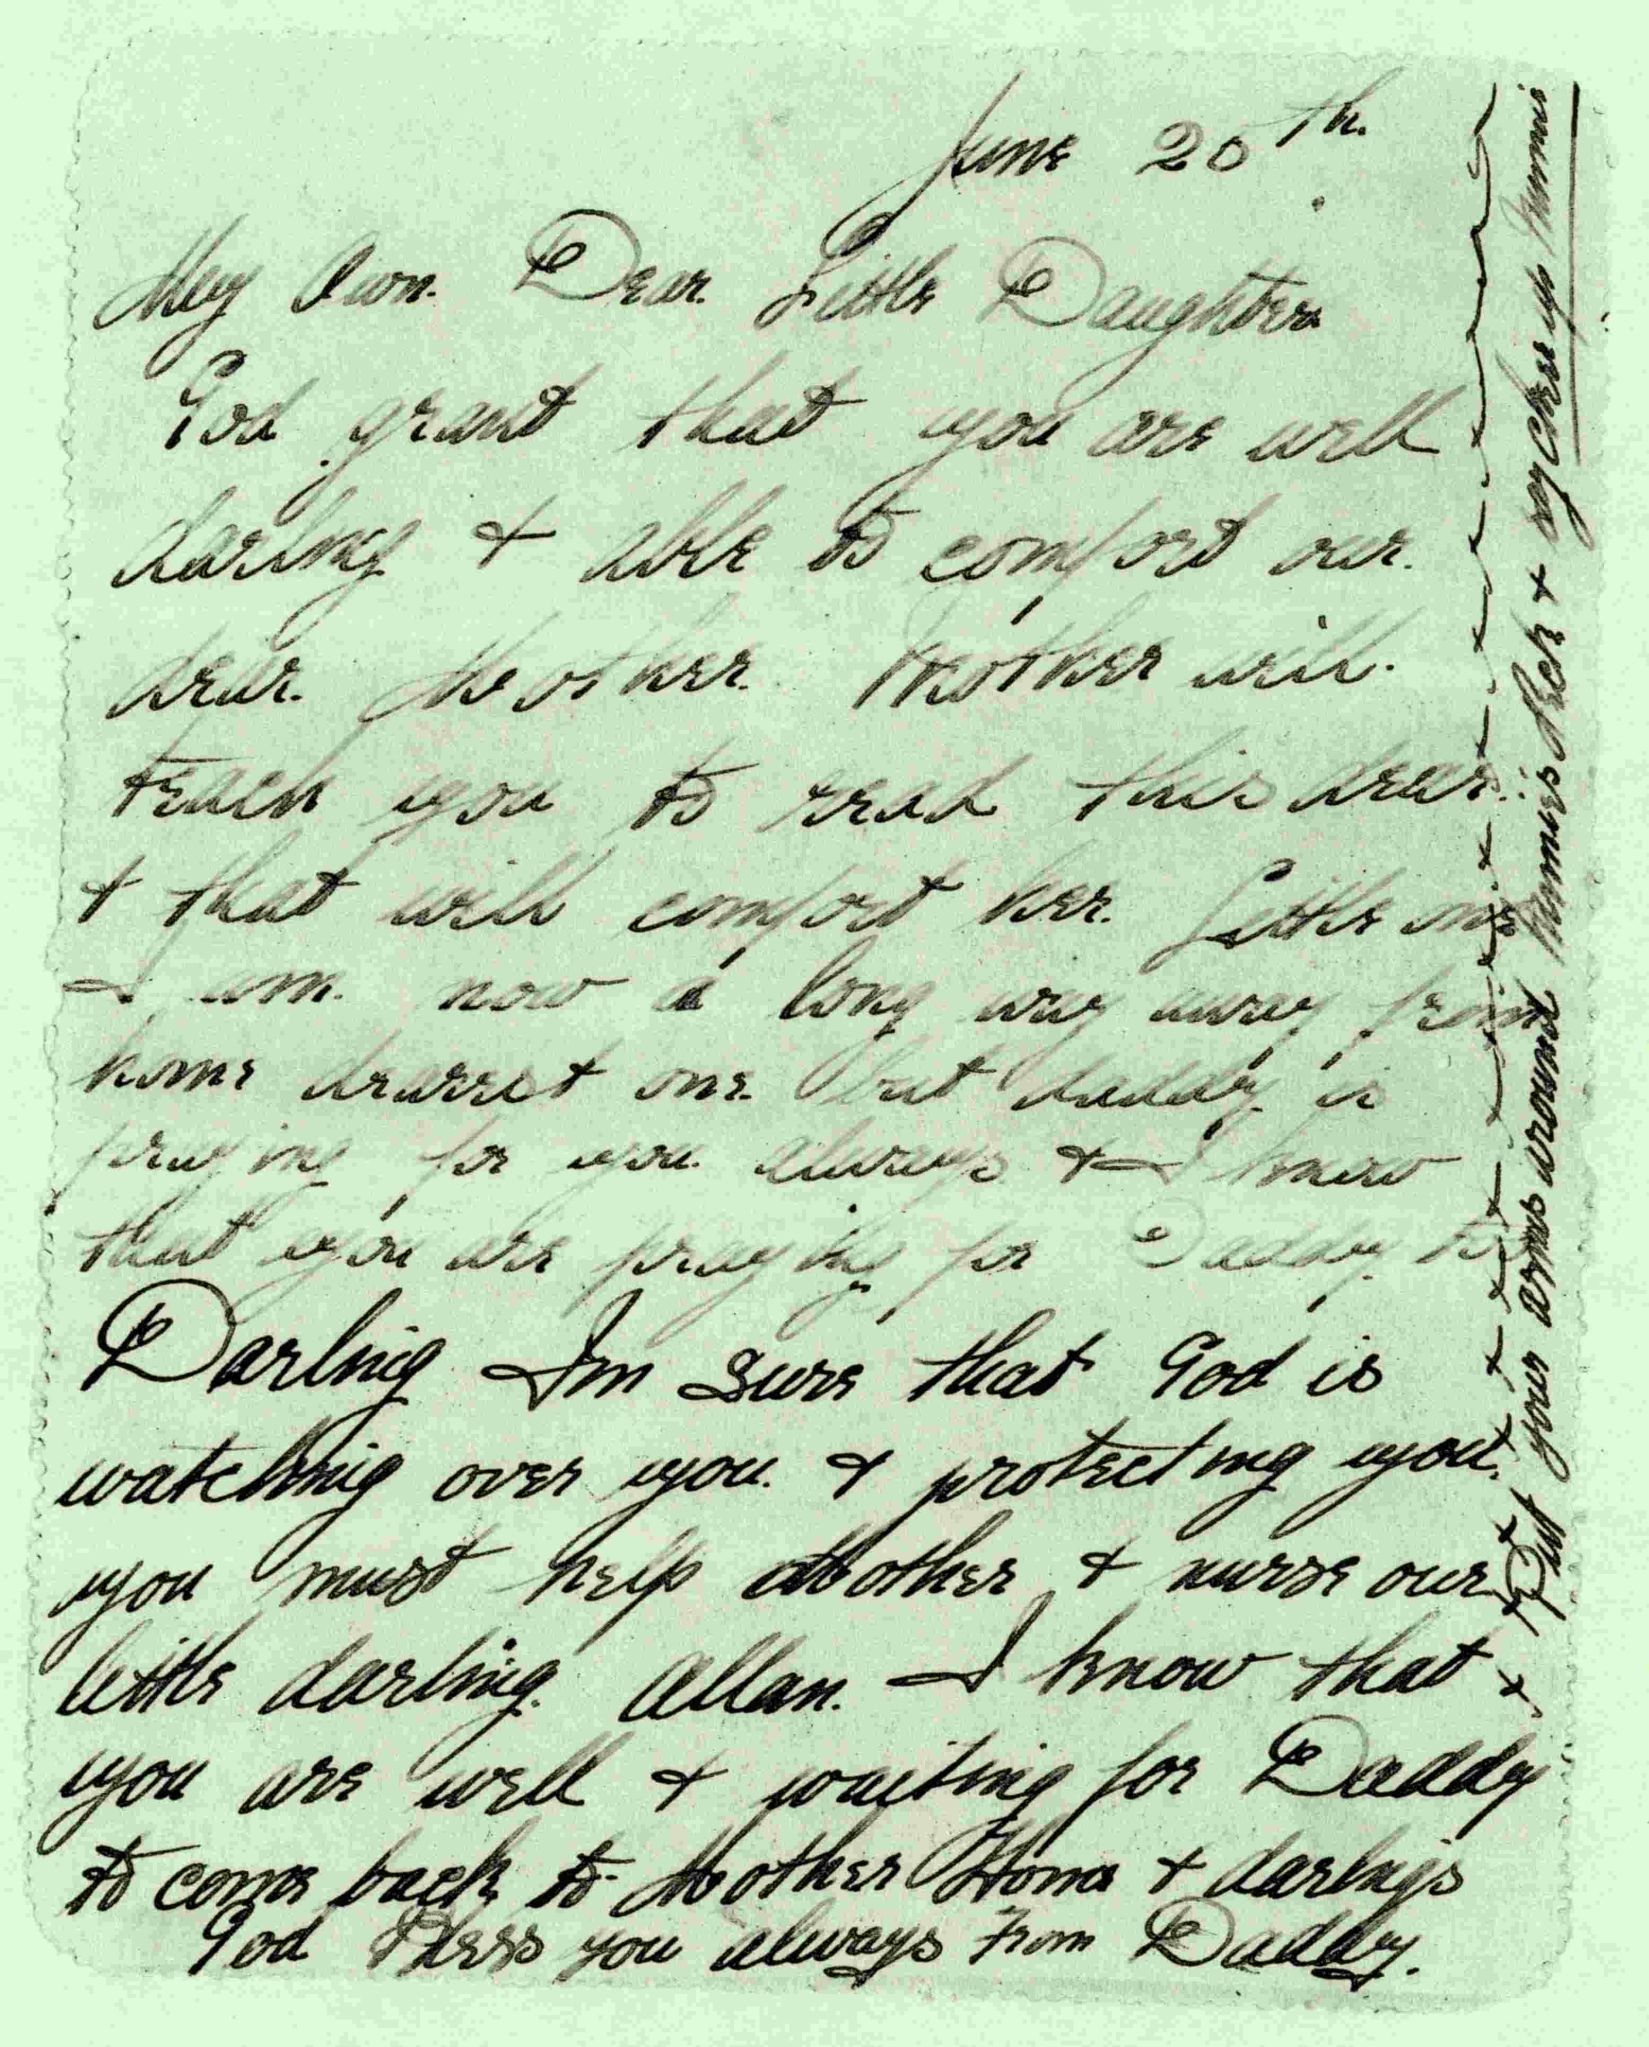 June 20th.
My Own. Dear. Little Daughter.
God grant that you are well
darling & able to comfort our.
dear. Mother. Mother will.
teach you to read this dear.
& that will comfort her. Little one
I am. now a long way away from
home dearest one. but daddy is
praying for you always & I know
that you are praying for Daddy to
Darling Im sure that God is
watching over you. & protecting you.
you must help Mother & nurse our
little darling. Allan. I know that
you are well & waiting for Daddy
to come back to Mother Home & darlings
God Bless you always from Daddy.
Put your arms around Mumies neck & cheer up Mumie